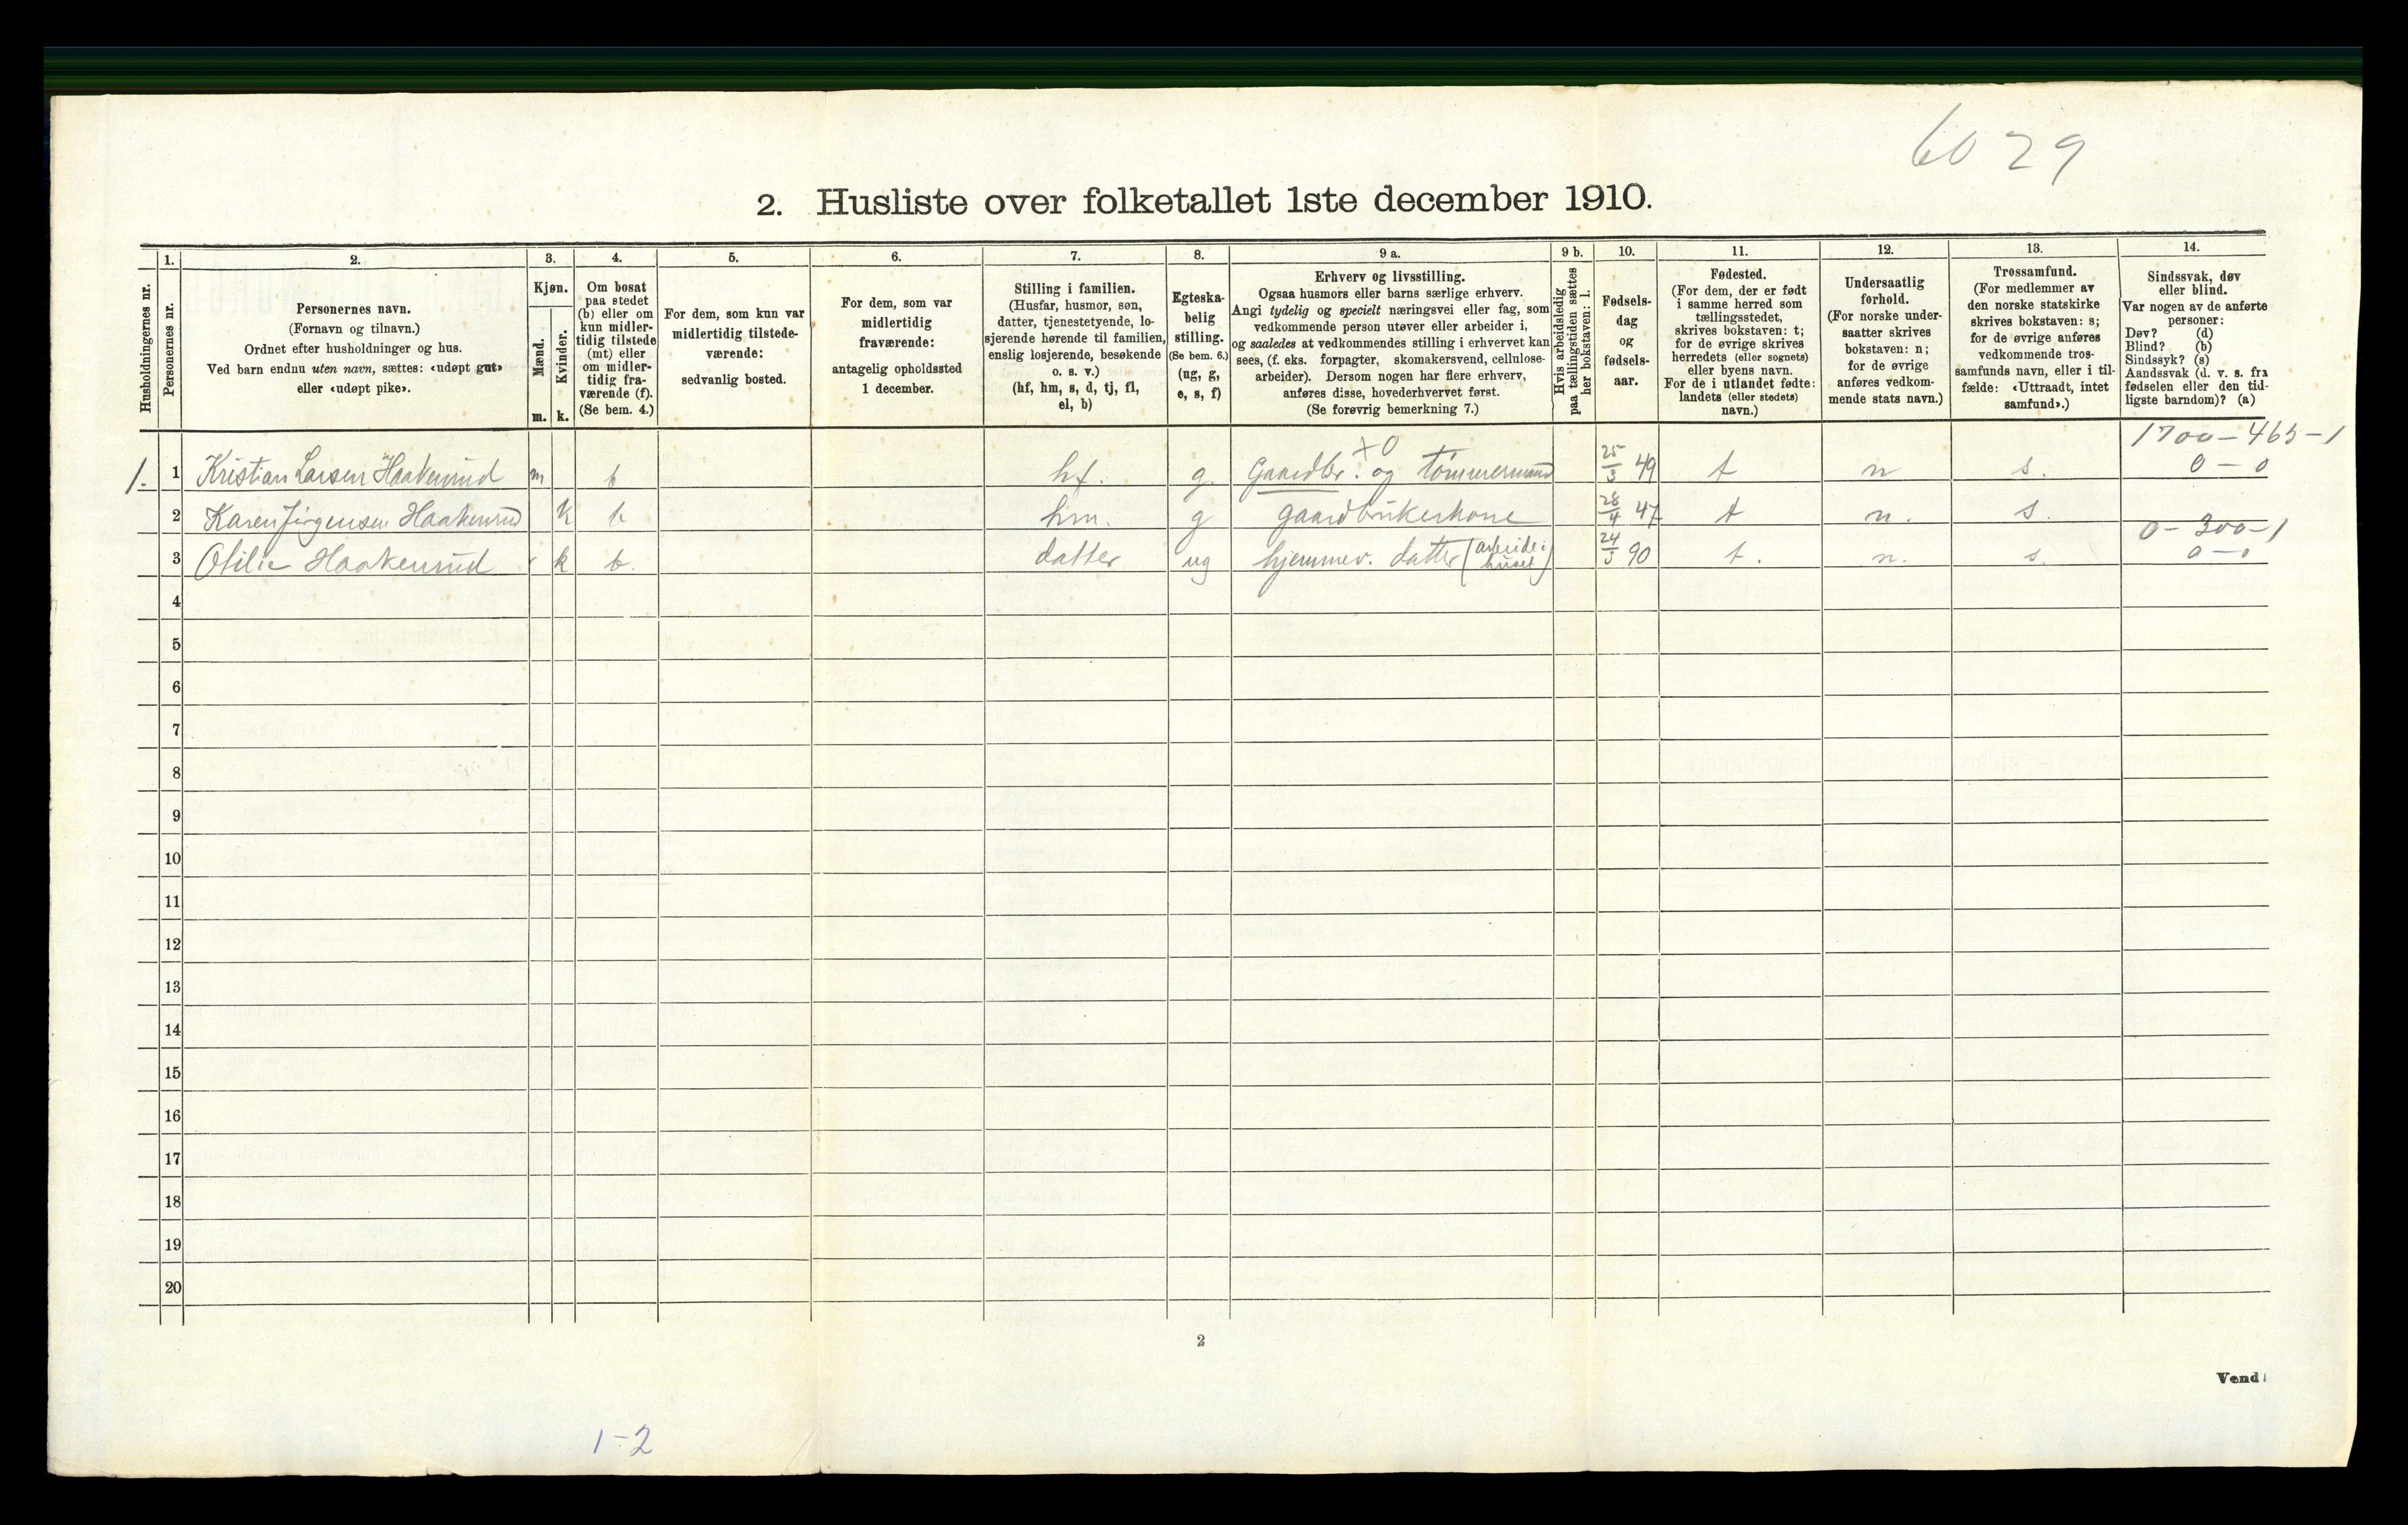 60 29
2. Husliste over folketallet 1ste december 1910.
Husholdningernes nr.
1.
Personernes nr.
2.
Personernes navn.
(Fornavn og tilnavn.)
Ordnet efter husholdninger og hus.
Ved barn endnu uten navn, sættes: «udøpt gut»
eller «udøpt pike».
3.
Kjøn.
Mænd.
m.
Kvinder.
k.
4.
Om bosat
paa stedet
(b) eller om
kun midler-
tidig tilstede
(mt) eller
om midler-
tidig fra-
værende (f).
(Se bem. 4.)
5.
For dem, som kun var
midlertidig tilstede-
værende:
sedvanlig bosted.
6.
For dem, som var
midlertidig
fraværende:
antagelig opholdssted
1 december.
7.
Stilling i familien.
(Husfar, husmor, søn,
datter, tjenestetyende, lo-
sjerende hørende til familien,
enslig losjerende, besøkende
o. s. v.)
(hf, hm, s, d, tj, fl,
el, b)
8.
Egteska-
belig
stilling.
(Se bem. 6.)
(ug, g,
e, s, f)
9 a.
Erhverv og livsstilling.
Ogsaa husmors eller barns særlige erhverv.
Angi tydelig og specielt næringsvei eller fag, som
vedkommende person utøver eller arbeider i,
og saaledes at vedkommendes stilling i erhvervet kan
sees, (f. eks. forpagter, skomakersvend, cellulose-
arbeider). Dersom nogen har flere erhverv,
anføres disse, hovederhvervet først.
(Se forøvrig bemerkning 7.)
9 b.
Hvis arbeidsledig
paa tællingstiden sættes
her bokstaven: l.
10.
Fødsels-
dag
og
fødsels-
aar.
11.
Fødested.
(For dem, der er født
i samme herred som
tællingsstedet,
skrives bokstaven: t;
for de øvrige skrives
herredets (eller sognets)
eller byens navn.
For de i utlandet fødte:
landets (eller stedets)
navn.)
12.
Undersaatlig
forhold.
(For norske under-
saatter skrives
bokstaven: n;
for de øvrige
anføres vedkom-
mende stats navn.)
13.
Trossamfund.
(For medlemmer av
den norske statskirke
skrives bokstaven: s;
for de øvrige anføres
vedkommende tros-
samfunds navn, eller i til-
fælde: «Uttraadt, intet
samfund».)
14.
Sindssvak, døv
eller blind.
Var nogen av de anførte
personer:
Døv? (d)
Blind? (b)
Sindssyk? (s)
Aandssvak (d. v. s. fra
fødselen eller den tid-
ligste barndom)? (a)
XO 1700-465-1
1. 1 Kristian Larsen Haakenrud m b hf. g. Gaardbr. og tømmermand 25/3 49 t n s. 0-0
2 Karen Jörgensen Haakenrud k b hm. g gaardbrukerkone 28/4 47 t n. s.
0-300-1
3 Otilie Haakenrud k b. datter ug hjemmev. datter (arbeide i huset) 24/3 90 t. n. s. 0-0
4
5
6
7
8
9
10
11
12
13
14
15
16
17
18
19
20
2
Vend!
1-2